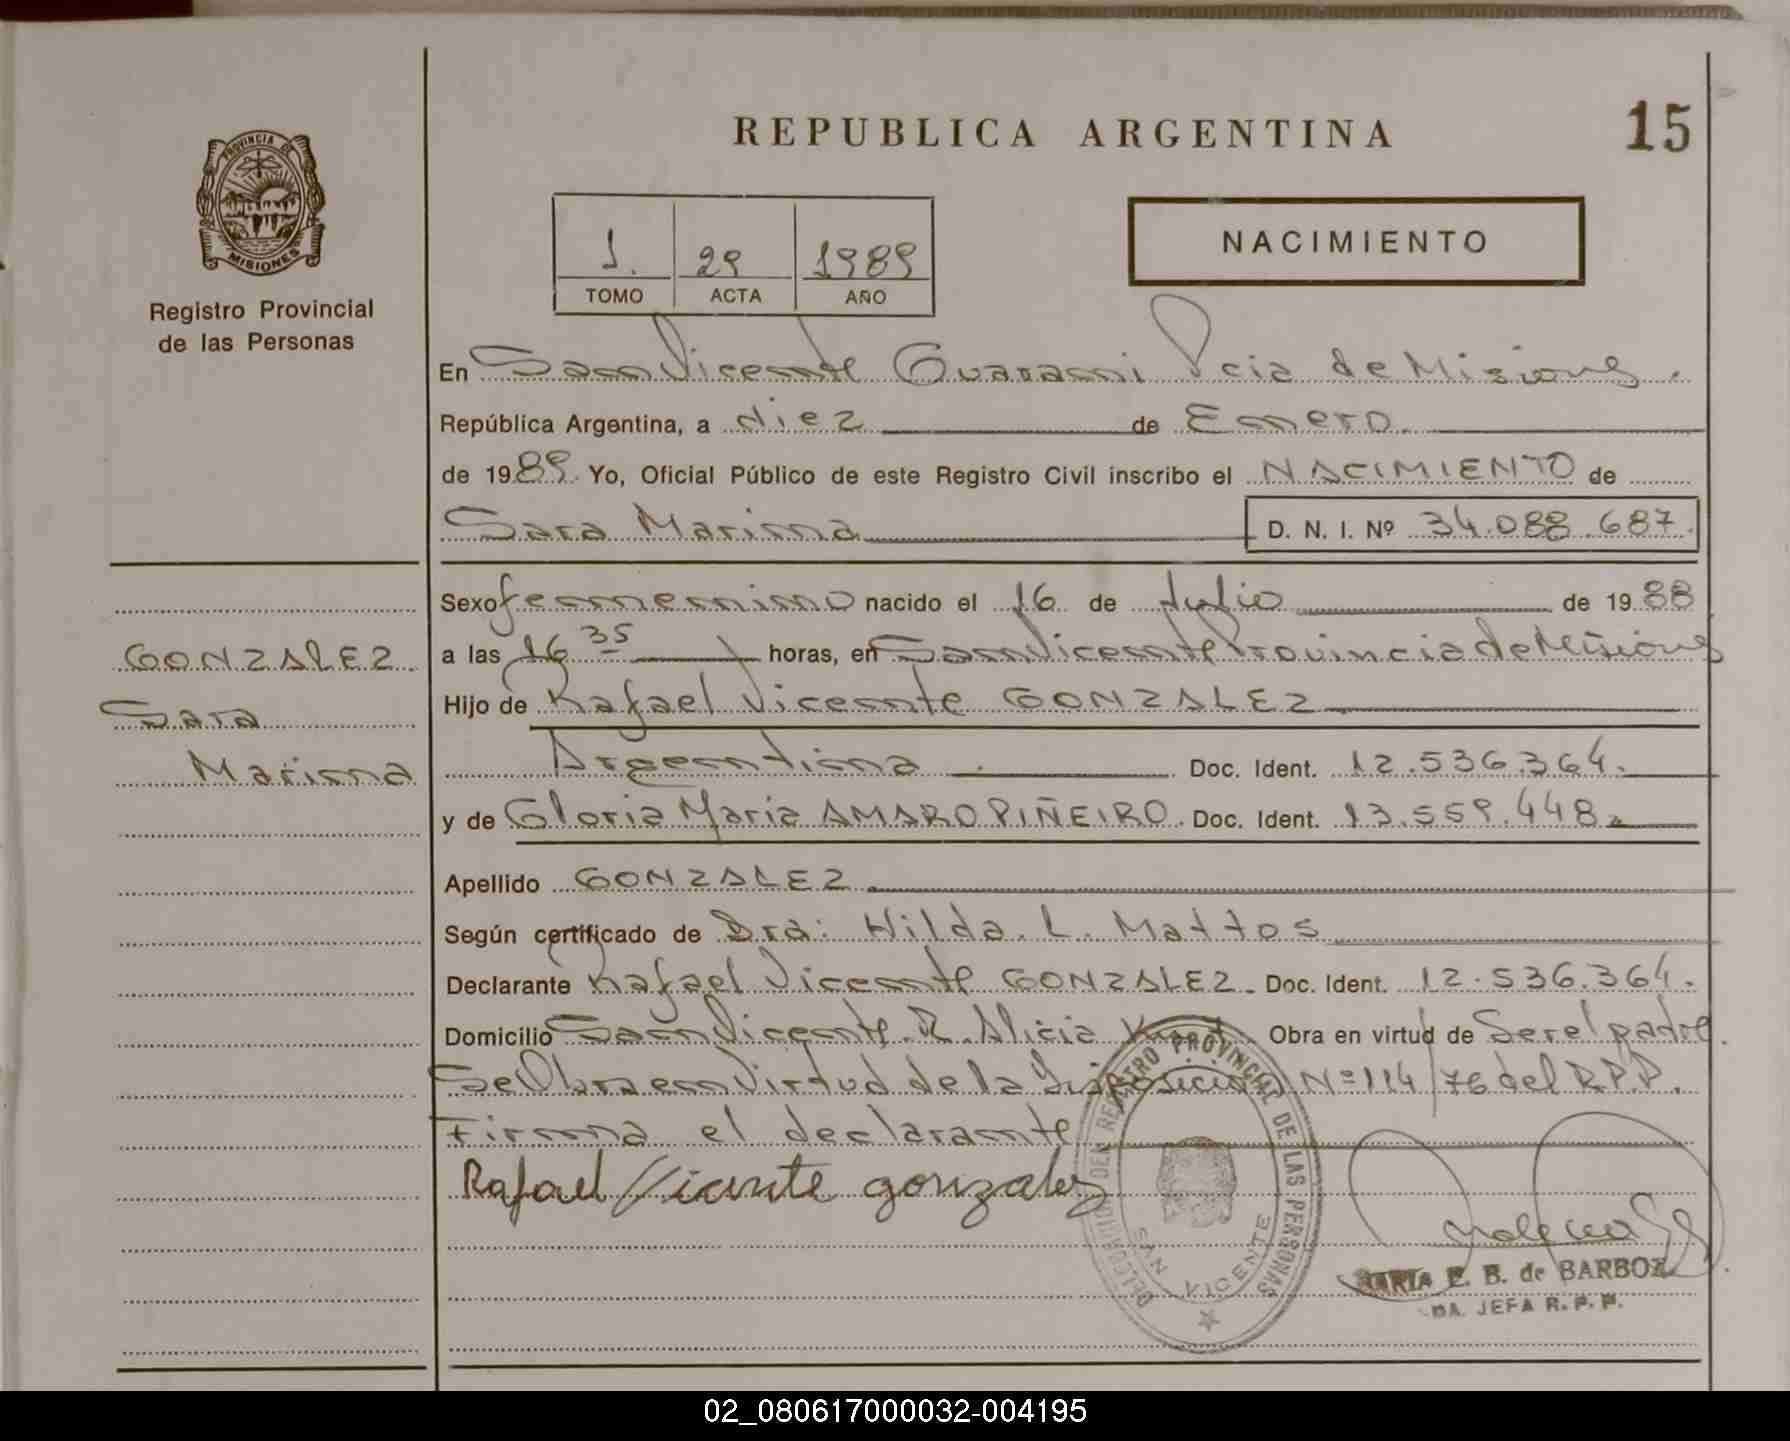 REPUBLICA ARGENTINA
15
PROVINCIA DE
MISIONES
Registro Provincial
de las Personas
1. 29 1989
TOMO ACTA AÑO
NACIMIENTO
En San Vicente Guarani Pcia de Misiones.
República Argentina, a diez de Enero
de 1989. Yo, Oficial Público de este Registro Civil inscribo el NACIMIENTO de
Sara Marina D. N. I. Nº 34.088.687.
Sexo femenino nacido el 16 de Julio de 1988
a las 16 35 horas, en San Vicente Provincia de Misiones
Hijo de Rafael Vicente GONZALEZ
Argentina Doc. Ident. 12.536.364.
y de Gloria Maria AMARO PIÑEIRO. Doc. Ident. 13.559.448
Apellido GONZALEZ
Según certificado de Dra: Hilda. L. Mattos
Declarante Rafael Vicente GONZALEZ. Doc. Ident. 12.536.364.
Domicilio San Vicente. R. Alicia Obra en virtud de Ser el padre.
Se Obra en Virtud de la Disposicion Nº 114/76 del R.P.P.
Firma el declarante
Rafael Vicente gonzalez
GONZALEZ.
Sara
Marina
DELEGACION DEL REGISTRO PROVINCIAL DE LAS PERSONAS
SAN VICENTE
MARIA E. B. de BARBOZA
DA. JEFA R. P. P.
02_080617000032-004195